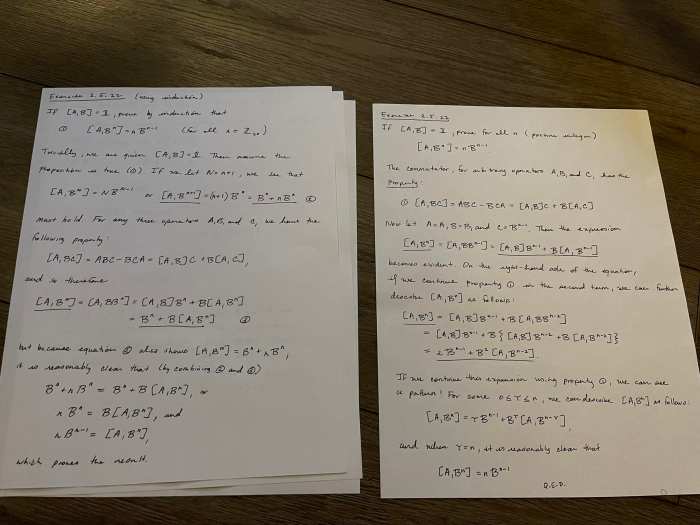 Exercise 2.5.22 (using induction)
If [A,B] = 1, prove by induction that
① [A,Bⁿ] = nBⁿ⁻¹ (for all n ∈ Z>0)
Trivially, we are given [A,B] = 1. Then assume the
proposition is true (①). If we let N = n+1, we see that
[A,Bᴺ] = NBᴺ⁻¹ or [A,Bⁿ⁺¹] = (n+1)Bⁿ = Bⁿ + nBⁿ ②
must hold. For any three operators A, B, and C, we have the
following property:
[A,BC] = ABC − BCA = [A,B]C + B[A,C],
and so therefore
[A,Bᴺ] = [A,BBⁿ] = [A,B]Bⁿ + B[A,Bⁿ]
= Bⁿ + B[A,Bⁿ] ③
but because equation ② also shows [A,Bᴺ] = Bⁿ + nBⁿ,
it is reasonably clear that (by combining ② and ③)
Bⁿ + nBⁿ = Bⁿ + B[A,Bⁿ], or
nBⁿ = B[A,Bⁿ], and
nBⁿ⁻¹ = [A,Bⁿ],
which proves the result.
Exercise 2.5.23
If [A,B] = 1, prove for all n (positive integer)
[A,Bⁿ] = nBⁿ⁻¹
The commutator, for arbitrary operators A, B, and C, has the
property:
① [A,BC] = ABC − BCA = [A,B]C + B[A,C]
Now let A = A, B = B, and C = Bⁿ⁻¹. Then the expression
[A,Bⁿ] = [A,BBⁿ⁻¹] = [A,B]Bⁿ⁻¹ + B[A,Bⁿ⁻¹]
becomes evident. On the right-hand side of the equation,
if we continue property ① in the second term, we can further
describe [A,Bⁿ] as follows:
[A,Bⁿ] = [A,B]Bⁿ⁻¹ + B[A,BBⁿ⁻²]
= [A,B]Bⁿ⁻¹ + B{[A,B]Bⁿ⁻² + B[A,Bⁿ⁻²]}
= 2Bⁿ⁻¹ + B²[A,Bⁿ⁻²].
If we continue this expansion using property ①, we can see
a pattern! For some 0 ≤ r ≤ n, we can describe [A,Bⁿ] as follows:
[A,Bⁿ] = rBⁿ⁻¹ + Bʳ[A,Bⁿ⁻ʳ],
and when r = n, it is reasonably clear that
[A,Bⁿ] = nBⁿ⁻¹
Q.E.D.